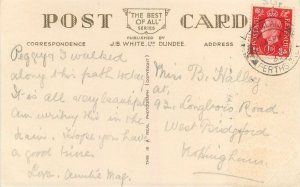 POST CARD
"THE BEST
OF ALL"
SERIES
PUBLISHED BY
CORRESPONDENCE J.B. WHITE, LTD DUNDEE. ADDRESS
Peggy. I walked
along this path today
It is all very beautiful
Am writing this in the
train. Hope you have
a good time.
Love. Auntie Mag.
REAL PHOTOGRAPH (COPYRIGHT)
Miss B. Halley
at,
92, Road
West Bridgford
Nottingham.
PERTHS